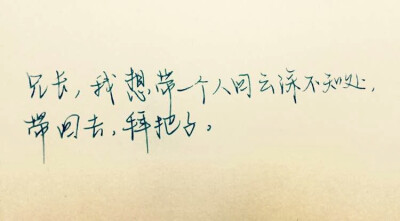 兄长，我想带一个人回云深不知处，
带回去，拜把子。